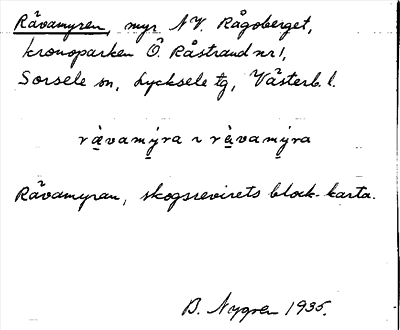 Rävamyren, myr NV. Rågoberget,
kronoparken Ö. Råstrand nr 1,
Sorsele sn, Lycksele tg, Västerb. l.
rä̀vamýra ~ rä̀vamýra
Rävamyran, skogsrevirets block-karta.
B. Nygren 1935.